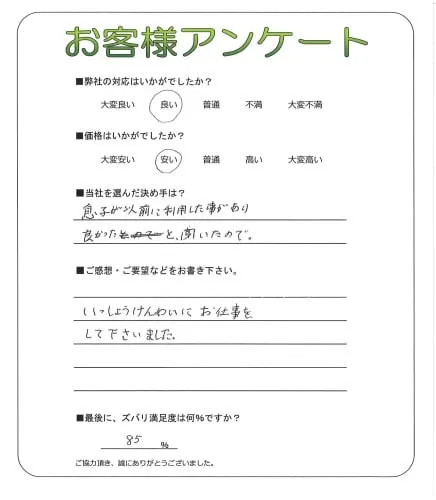 お客様アンケート
■弊社の対応はいかがでしたか?
大変良い 良い 普通 不満 大変不満
■価格はいかがでしたか?
大変安い 安い 普通 高い 大変高い
■当社を選んだ決め手は?
息子が以前に利用した事があり
良かった と、聞いたので。
■ご感想・ご要望などをお書き下さい。
いっしょうけんめいに お仕事を
して下さいました。
■最後に、ズバリ満足度は何%ですか?
85 %
ご協力頂き、誠にありがとうございました。